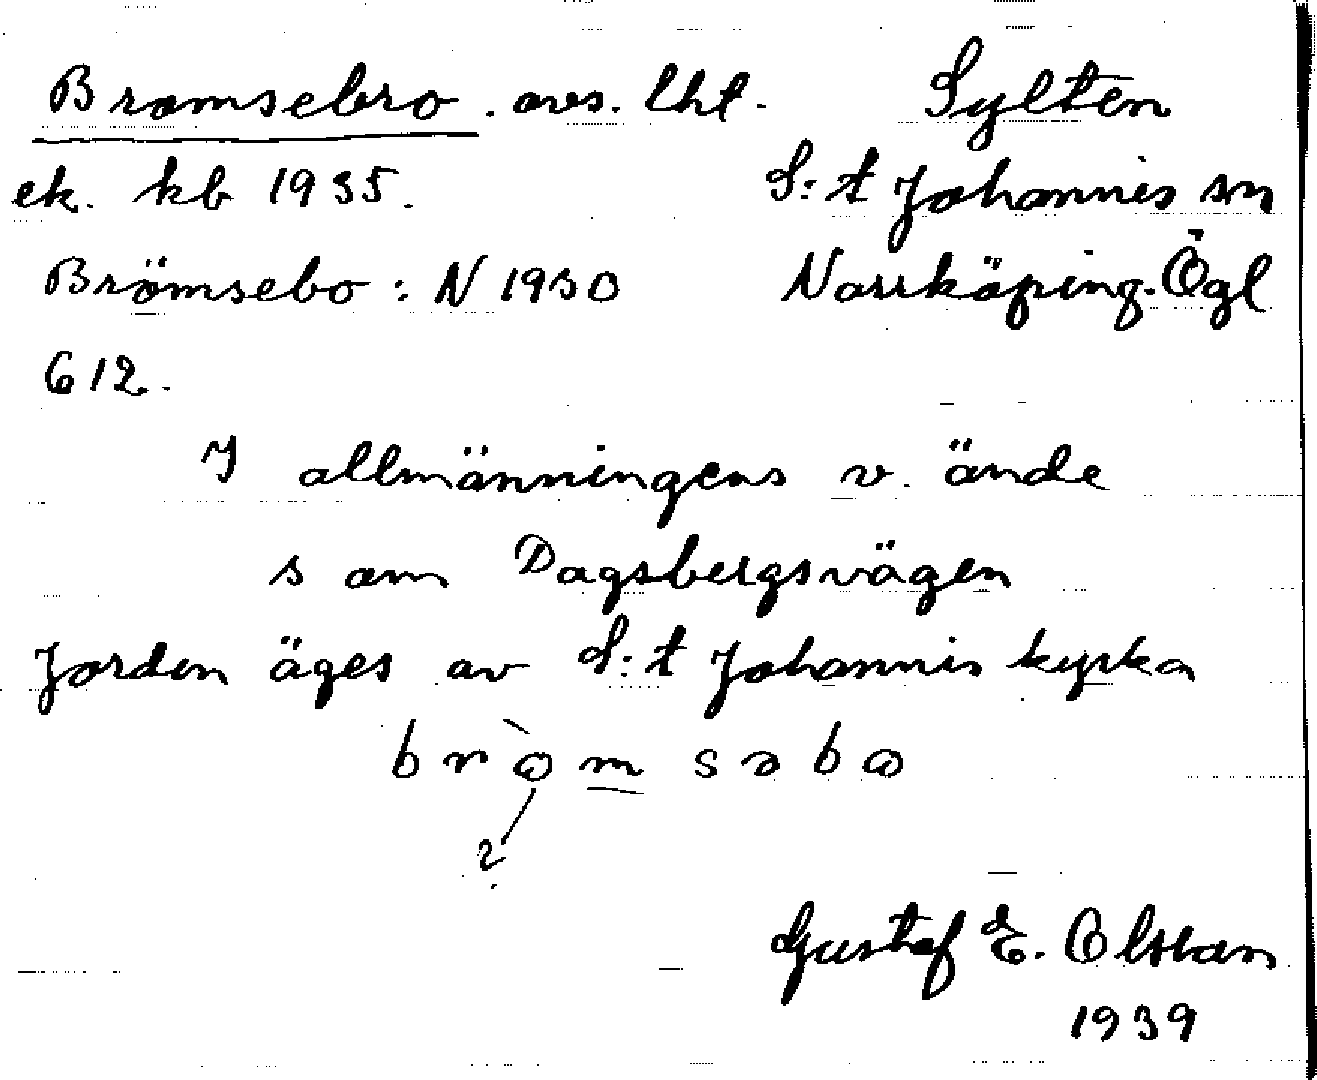 Bromsebro. avs. lht. Sylten
ek. kb 1935. S:t Johannes sn
Brömsebo: N 1930 Norrköping. Ögl
612.
I allmänningens v. ände
s om Dagsbergsvägen
Jorden äges av S:t Johannis kyrka
bròmsəbo
?
Gustaf E. Olsson
1939